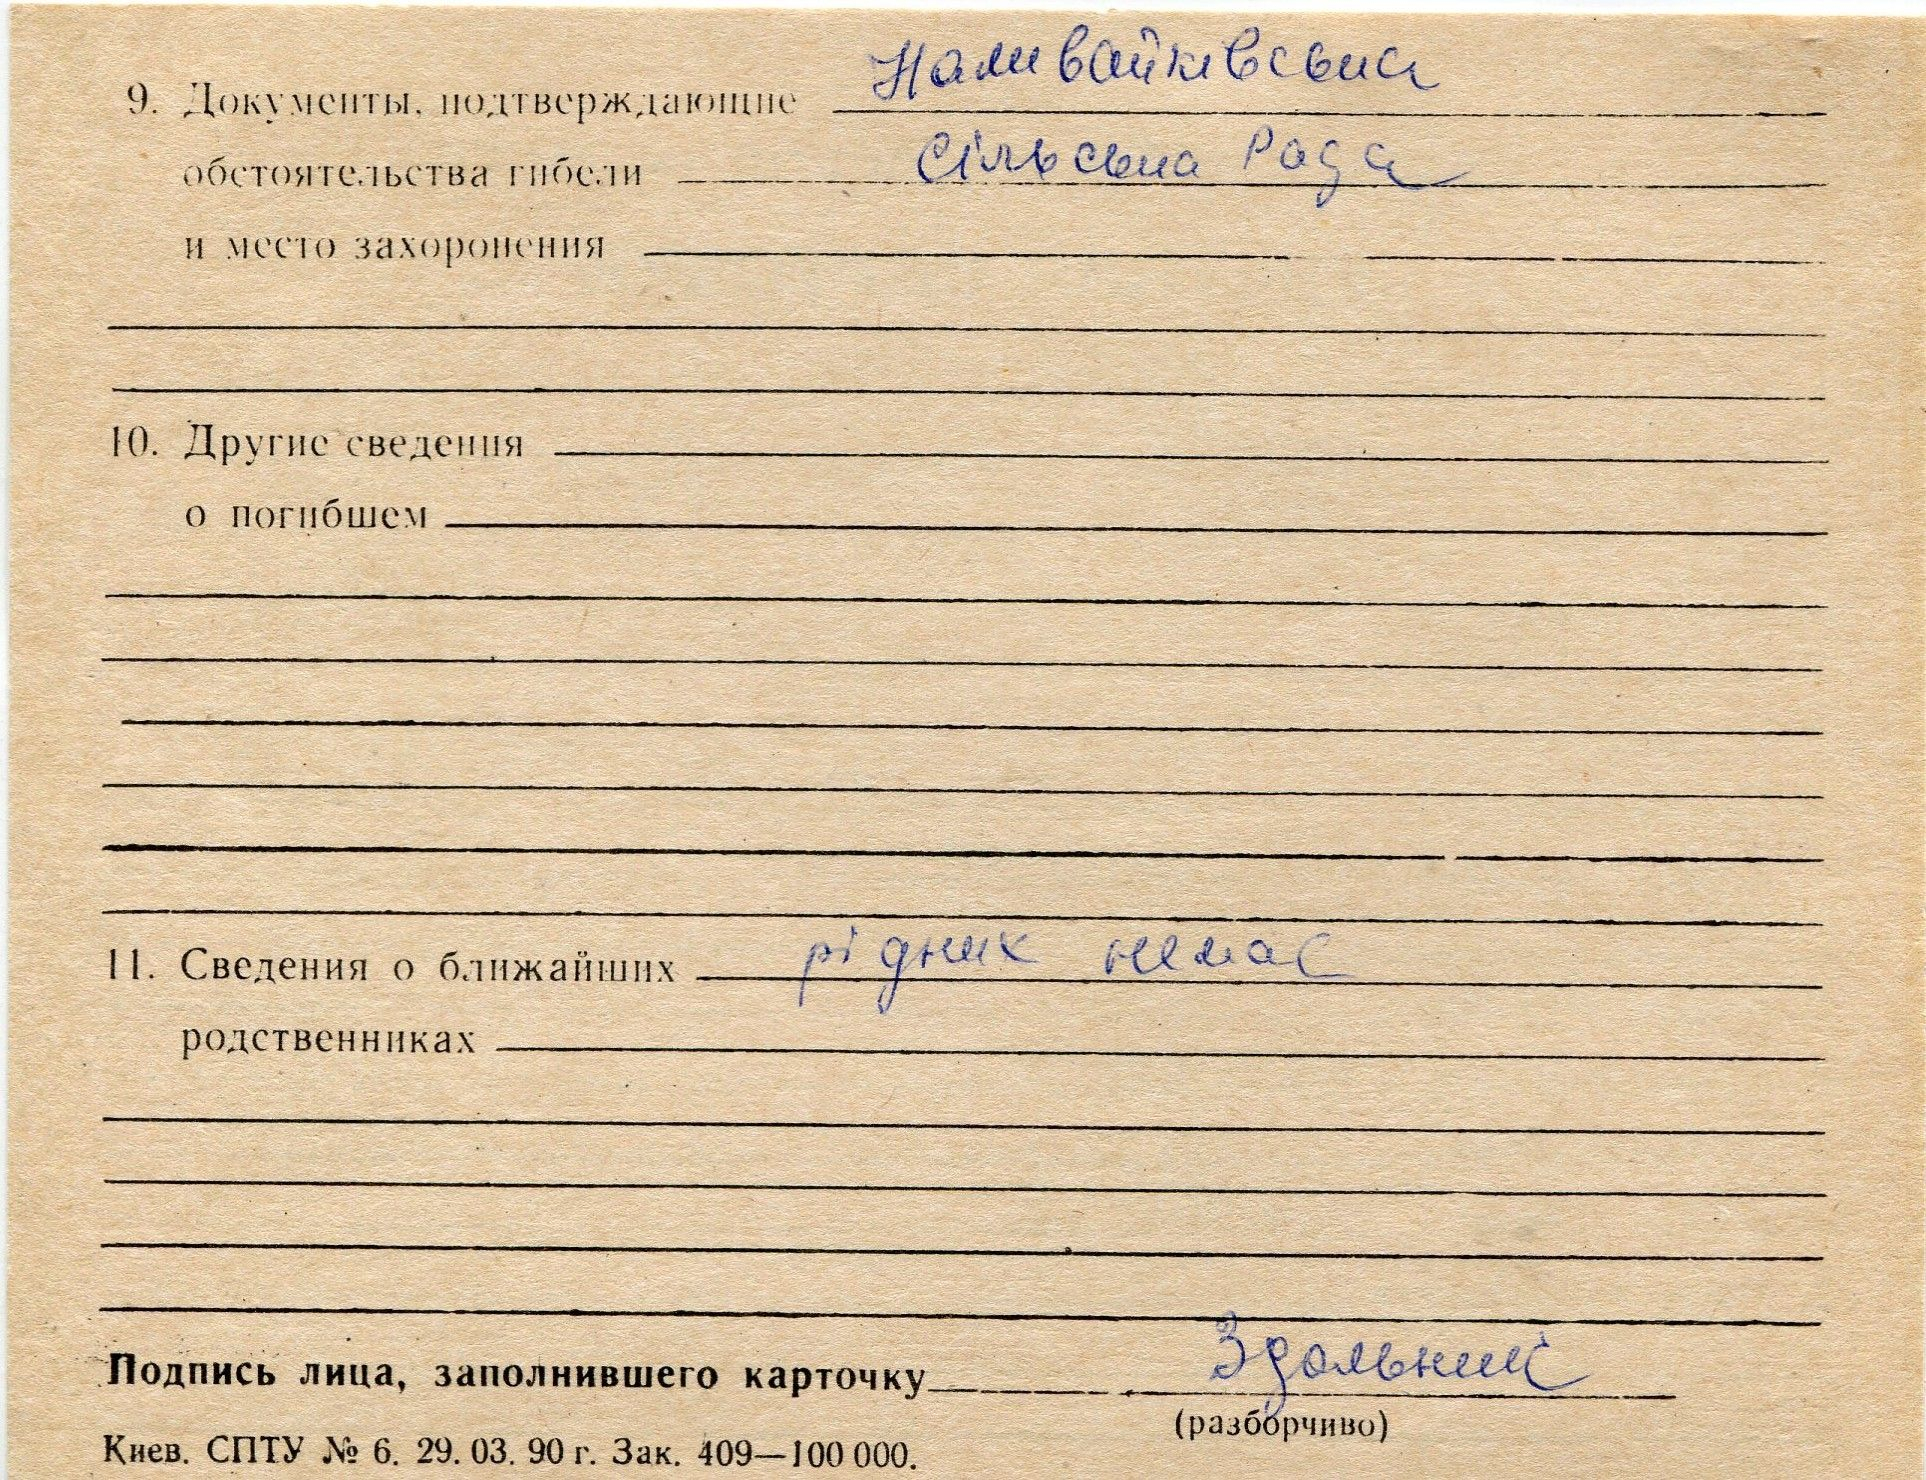 9. Документы, подтверждающие Наливайківська
обстоятельства гибели Сільська Рада
и место захоронения
10. Другие сведения
о погибшем
11. Сведения о ближайших рідних немає
родственниках
Подпись лица, заполнившего карточку Здольник
(разборчиво)
Киев. СПТУ № 6. 29. 03. 90 г. Зак. 409—100 000.